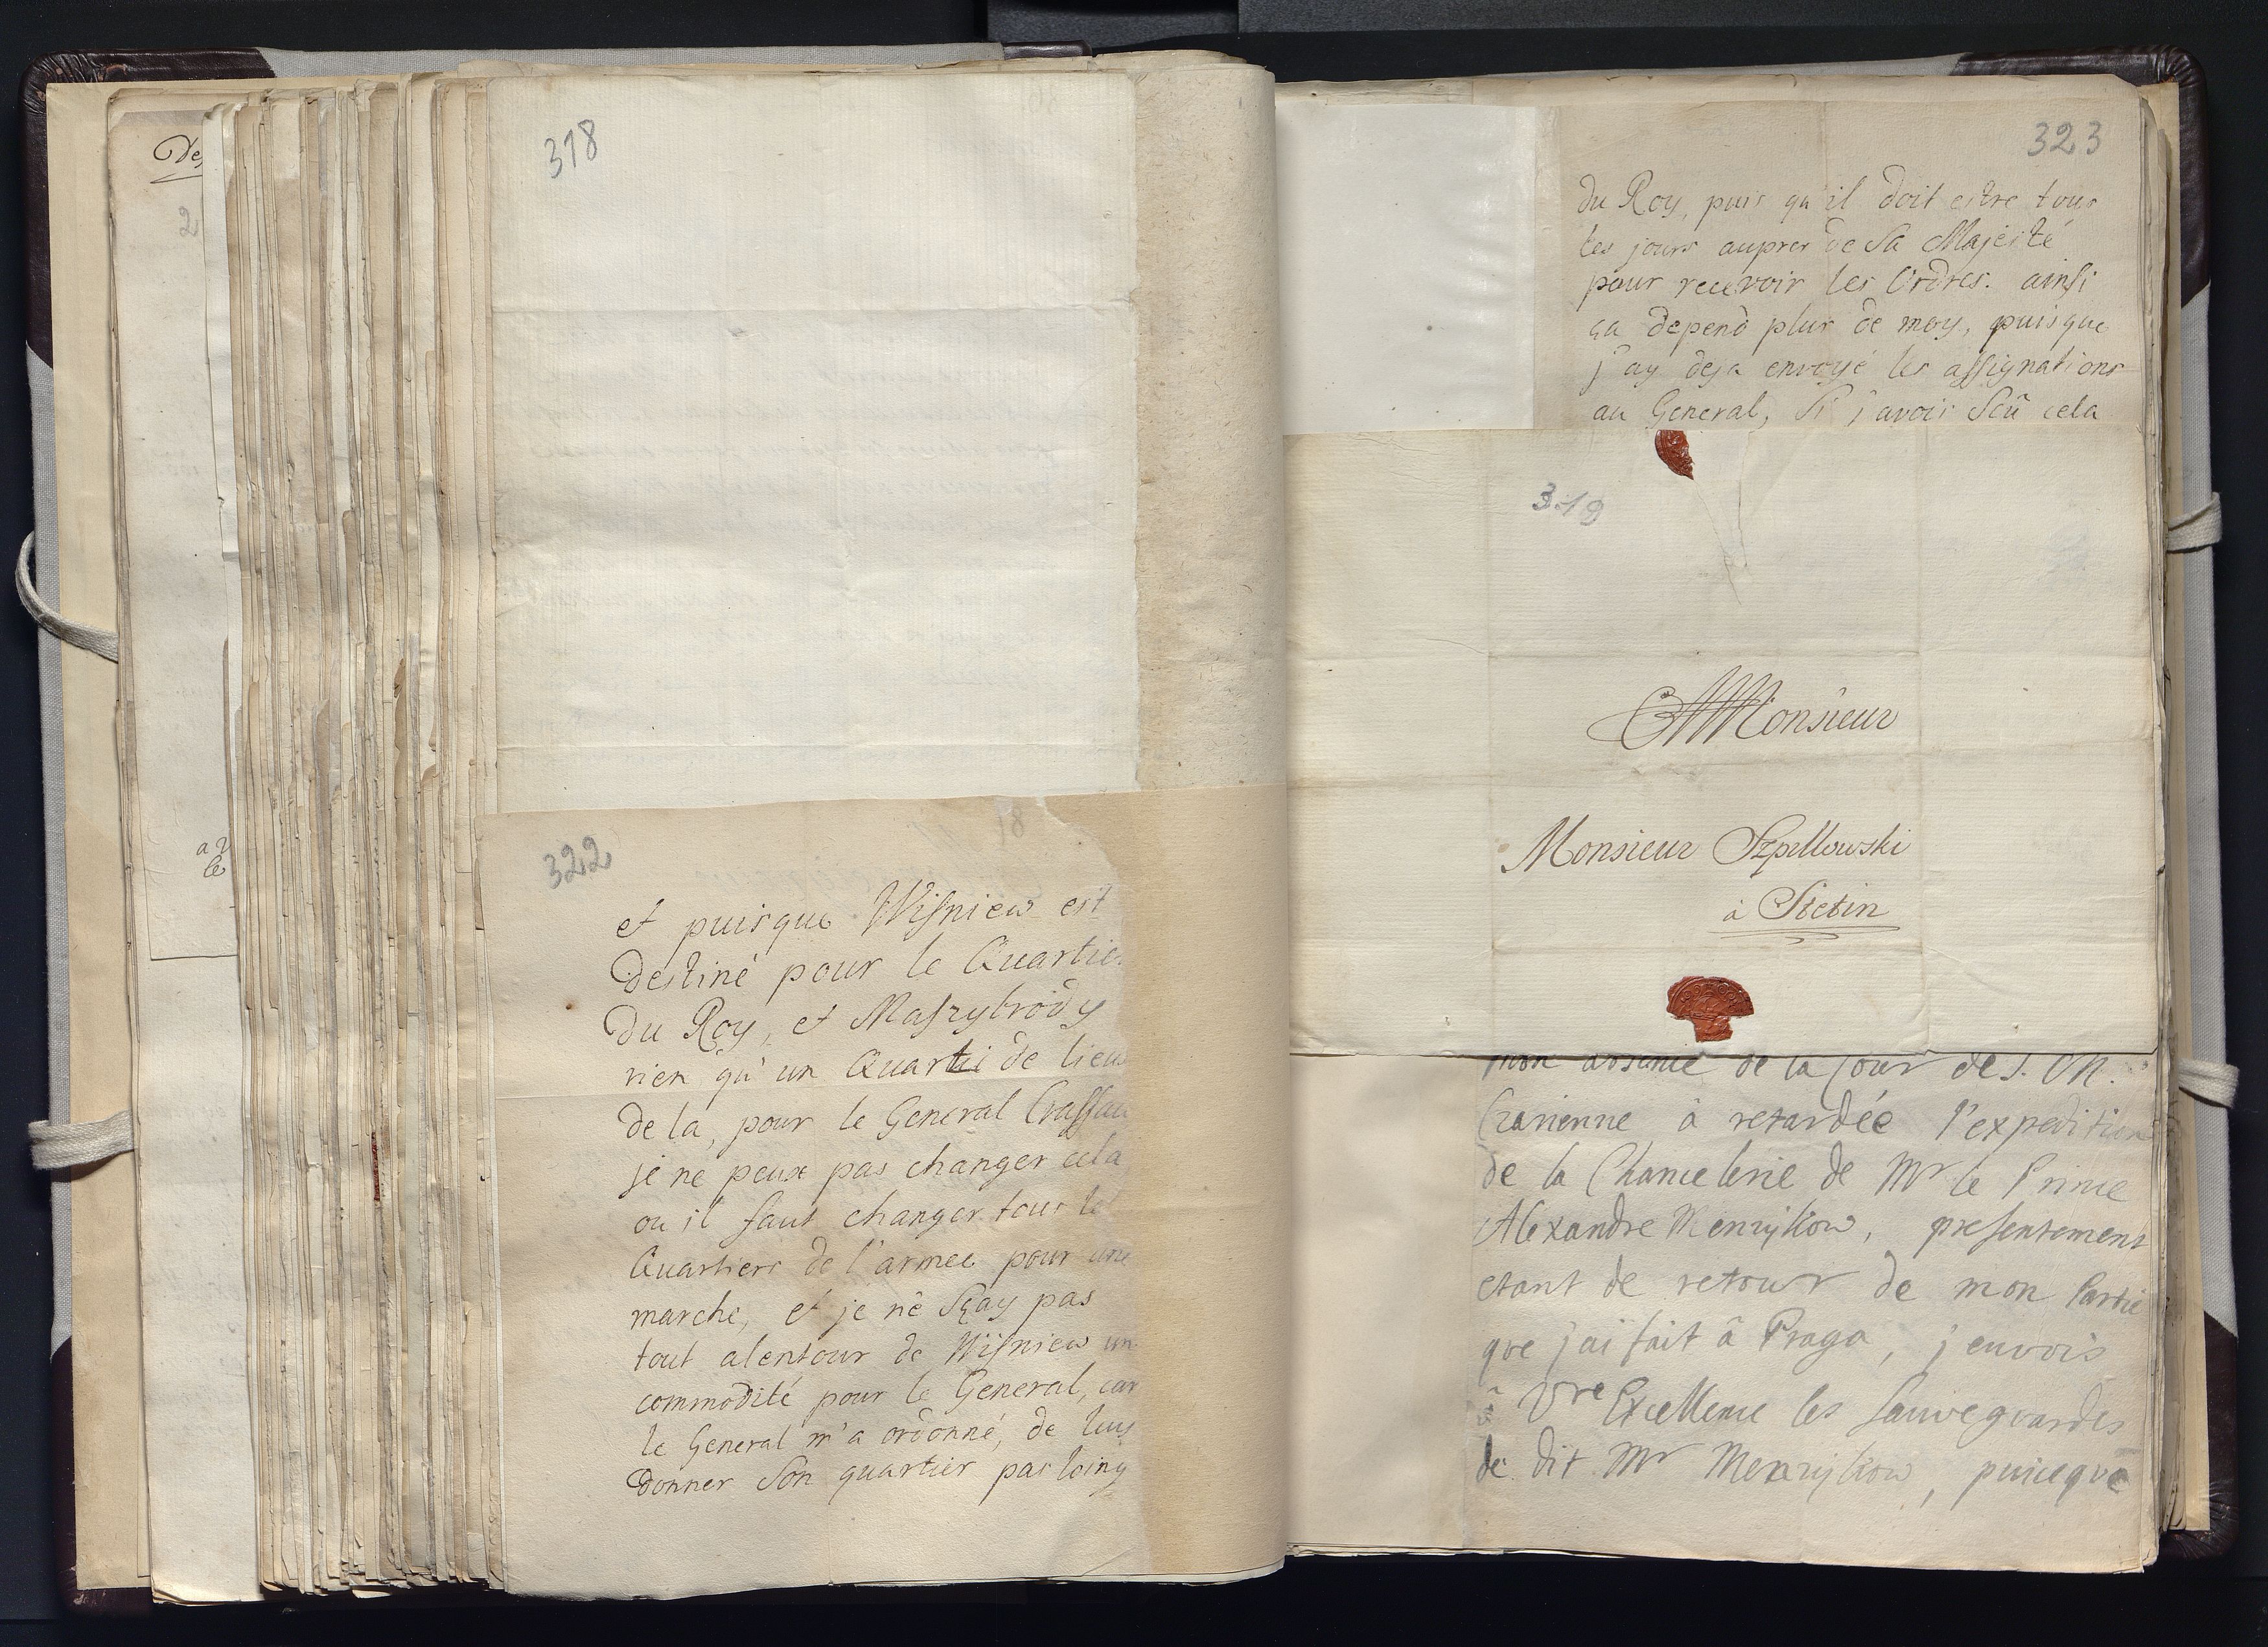 Des
2
318
322
et puisque Wisniew est
destiné pour le Quartier
du Roy, et Maszybrody
rien qu'un Quarti de lieu
de la, pour le General Crassau
je ne peux pas changer cela
ou il faut changer tous le
Quartiers de l'armee pour une
marche, et je ne sçay pas
tout alentour de Wisniew un
commodité pour le General, car
le General m'a ordonné, de luy
donner son quartier pas loing
323
du Roy, puis qu'il doit estre tous
les jours aupres de Sa Majesté
pour recevoir les Ordres. ainsi
ça depend plus de moy, puisque
j'ay deja envoyé les assignations
au General, Si j'avois Sçû cela
319
Monsieur
Monsieur Szpillowski
à Stetin
mon absence de la Cour de S. M.
Czarienne à retardée l'expedition
de la Chancelerie de Mr le Prince
Alexandre Menzykow, presentement
etant de retour de mon Partie
que j'ai fait â Praga, j'envois
â Vre Excellence les Sauveguardes
de dit Mr Menzykow, puiceque